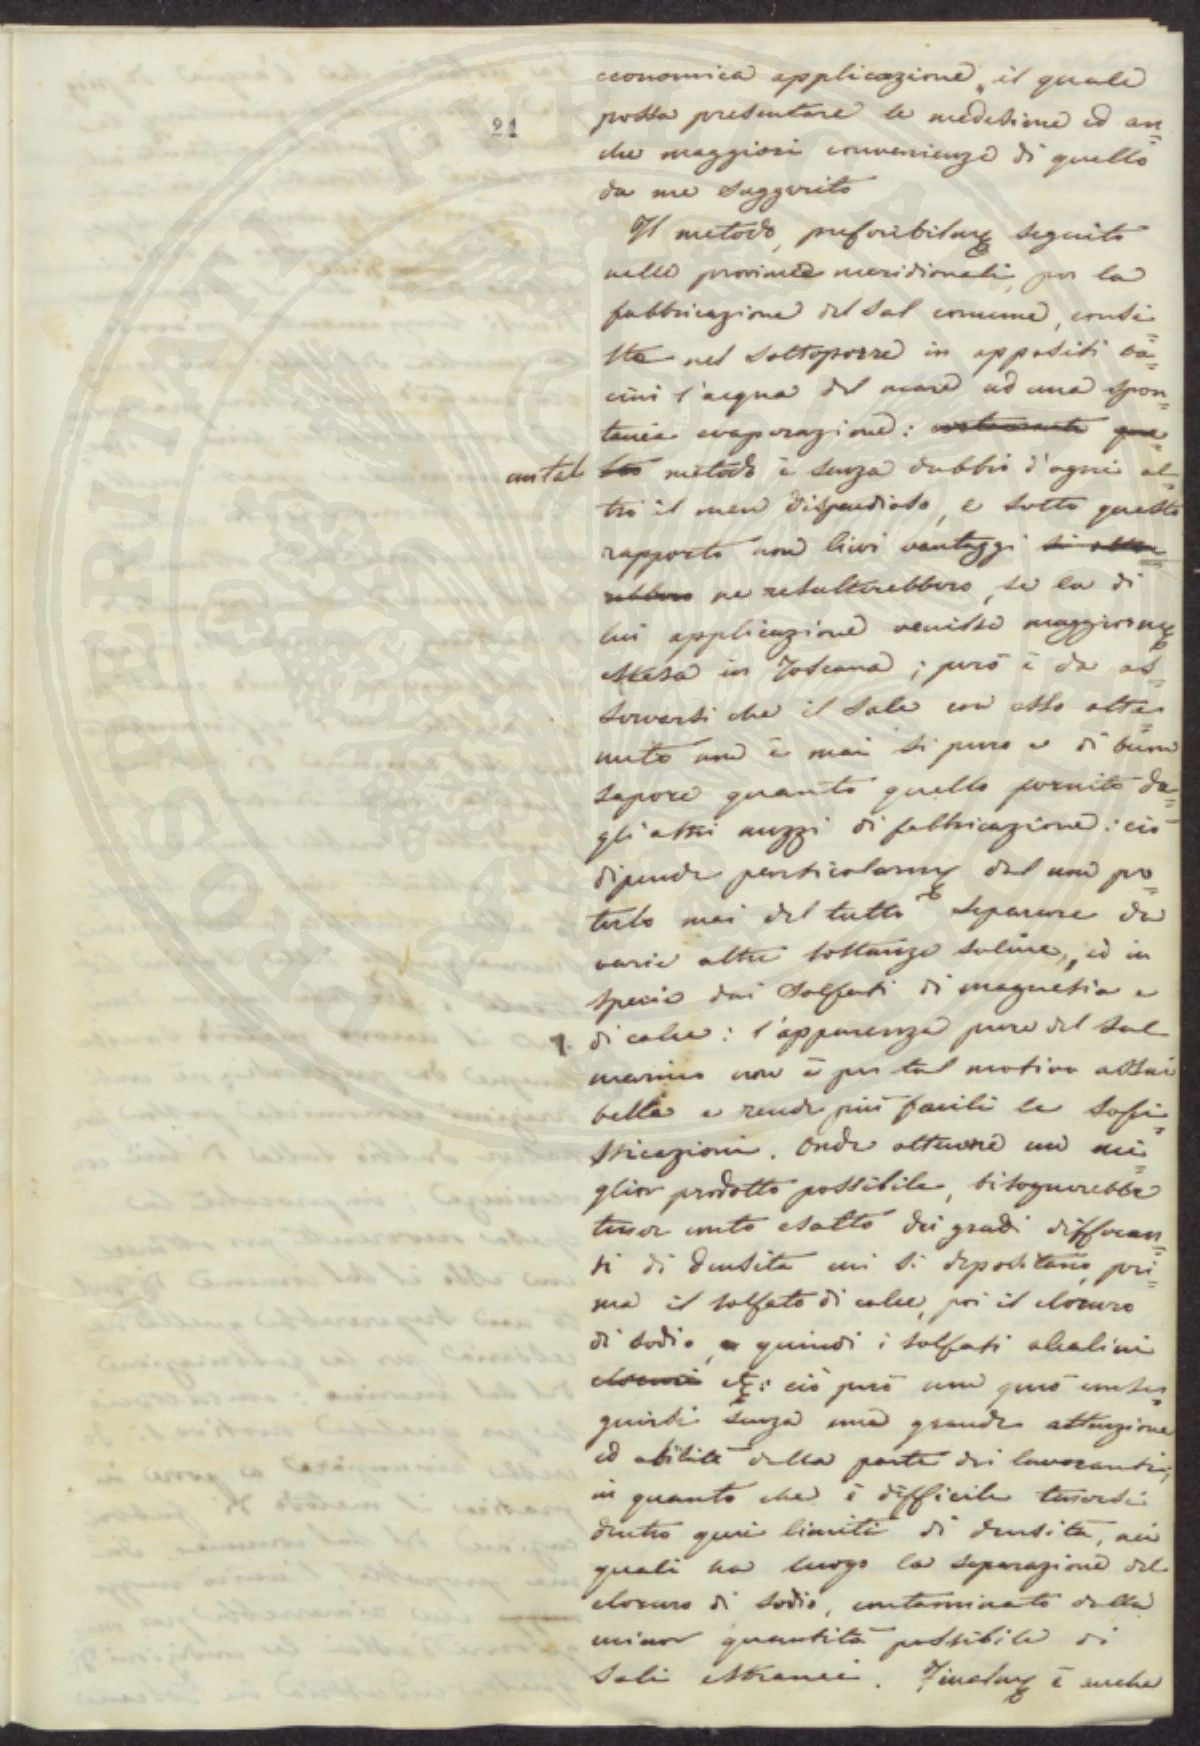 21
economica applicazione, il quale
possa presentare le medesime ed an=
che maggiori convenienze di quello
da me suggerito
Il metodo, preferibilmẽ seguito
nelle provincie meridionali, per la
fabbricazione del sal comune, consi=
ste nel sottoporre in appositi ba=
cini l'acqua del mare ad una spon=
tanea evaporazione: certamente que
un tal sto metodo è senza dubbio d'ogni al=
tro il men dispendioso, e sotto questo
rapporto non lievi vantaggi si otter
rebbero ne resulterebbero, se la di
lui applicazione venisse maggiormẽ
estesa in Toscana; però è da os=
servarsi che il sale con esso otte=
nuto non è mai sì puro e di buon
sapore quanto quello fornito da=
gli altri mezzi di fabbricazione: ciò
dipende particolarmẽ dal non po=
terlo mai del tutto separare da
varie altre sostanze saline, ed in
specie dai solfati di magnesia e
di calce: l'apparenza pure del sal
marino non è per tal motivo assai
bella e rende più facili le sofi=
sticazioni. Onde ottenere un mi=
glior prodotto possibile, bisognerebbe
tener conto esatto dei gradi differen=
ti di densità cui si depositano, pri=
ma il solfato di calce, poi il cloruro
di sodio, e quindi i solfati alcalini
cloruri etc: ciò però non può conse=
guirsi senza una grande attenzione
ed abilità dalla parte dei lavoranti;
in quanto che è difficile tenersi
dentro quei limiti di densità, nei
quali ha luogo la separazione del
cloruro di sodio, contaminato dalla
minor quantità possibile di
sali stranieri. Finalmẽ è anche